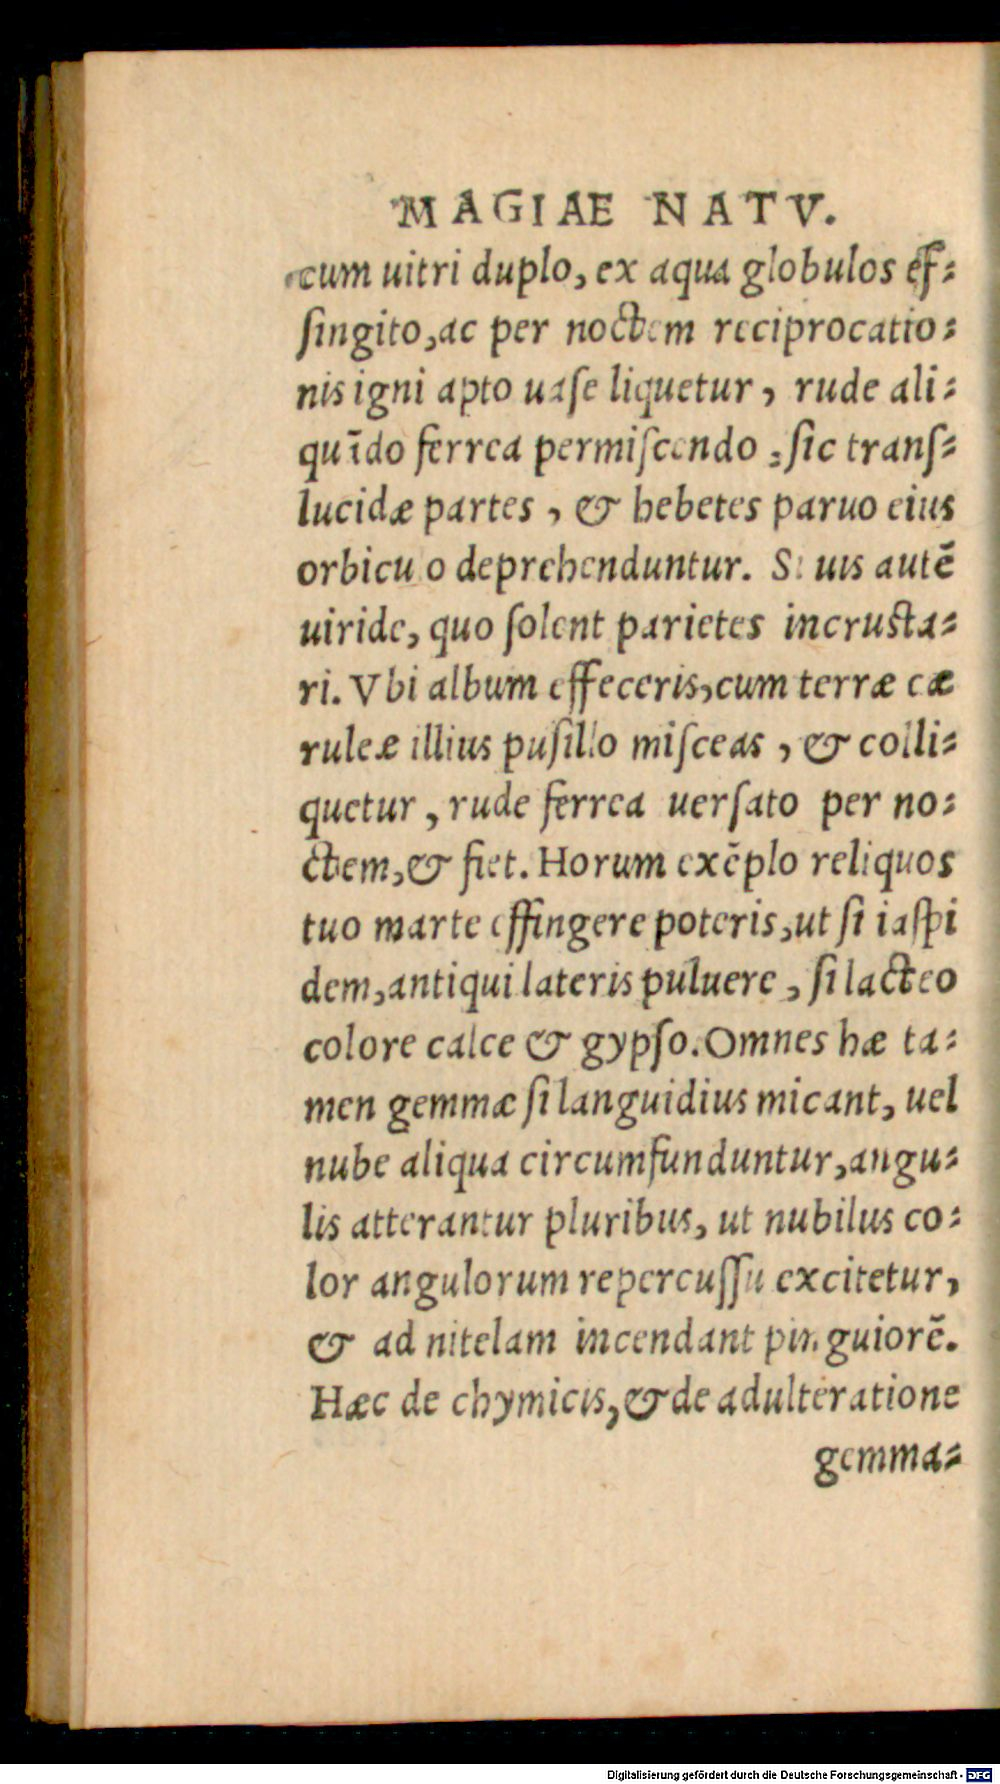 MAGIAE NATV.
cum uitri duplo, ex aqua globulos ef⸗
ſingito,ac per noctem reciprocatio⸗
nis igni apto uaſe liquetur, rude ali⸗
quīdo ferrea permiſcendo ⸗ ſic tranſ⸗
lucidæ partes, & hebetes paruo eius
orbicu o deprehenduntur. Si uis autē
uiride, quo ſolent parietes incruſta⸗
ri. Vbi album effeceris,cum terræ cæ
ruleæ illius puſillo miſceas, & colli⸗
quetur, rude ferrea uerſato per no⸗
ctem,& fiet. Horum exēplo reliquos
tuo marte effingere poteris,ut ſi iaſpi
dem,antiqui lateris puluere, ſi lacteo
colore calce & gypſo.Omnes hæ ta⸗
men gemmæ ſi languidius micant, uel
nube aliqua circumfunduntur,angu⸗
lis atterantur pluribus, ut nubilus co⸗
lor angulorum repercuſſu excitetur,
& ad nitelam incendant pinguiorē.
Hæc de chymicis,& de adulteratione
gemma⸗
Digitalisierung gefördert durch die Deutsche Forschungsgemeinschaft - DFG